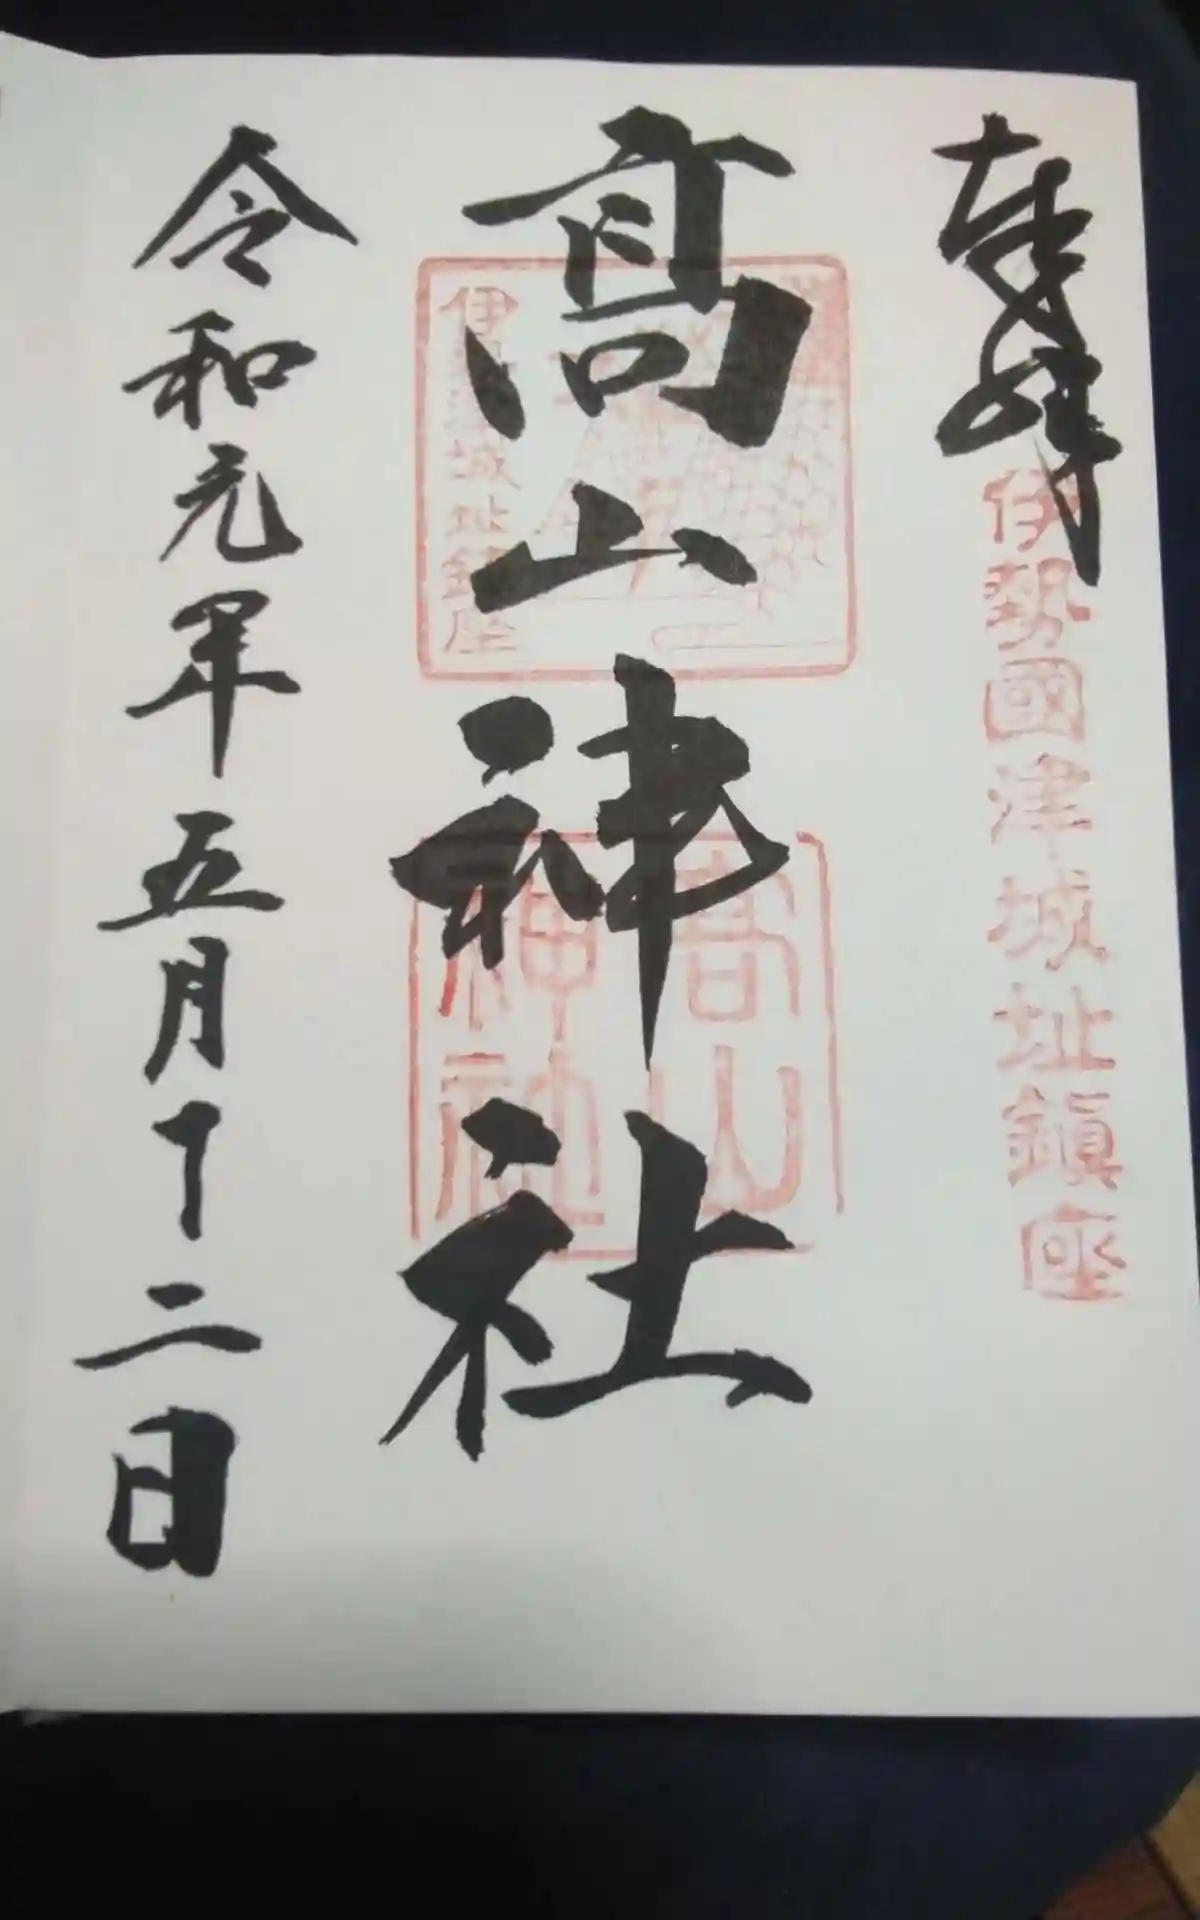 奉拝
伊勢國津城址鎮座
髙山神社
伊勢津城址鎮座
高山
神社
令和元年五月十二日